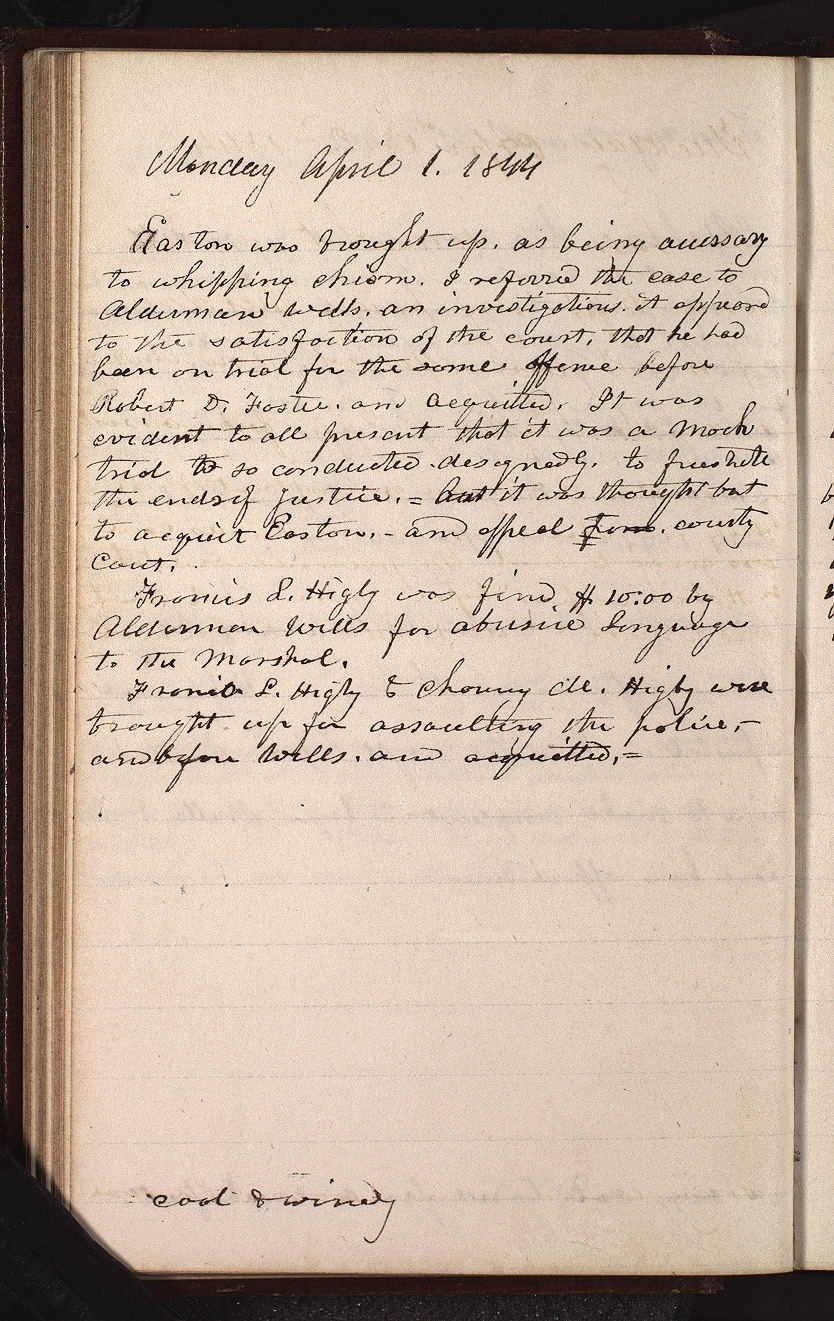 Monday April 1. 1844
Easton was brought up. as being accessary
to whipping chism. I referred the case to
Alderman wells. an investigations. it appeard
to the satisfaction of the court, that he had
been on trial for the same offence before
Robert D. Foster. and acquitted. It was
evident to all present that it was a mock
trial to so conducted designedly. to frustrate
the ends of justice. = but it was thought but
to acquit Easton. - and appeal from. county
Court.
Francis L. Higby was fined $10.00 by
Alderman Wells for abusive language
to the Marshal.
Francis L. Higby & Chancy M. Higby were
brought up for assaulting the police, -
and before Wells. and acquitted. =
cool & windy